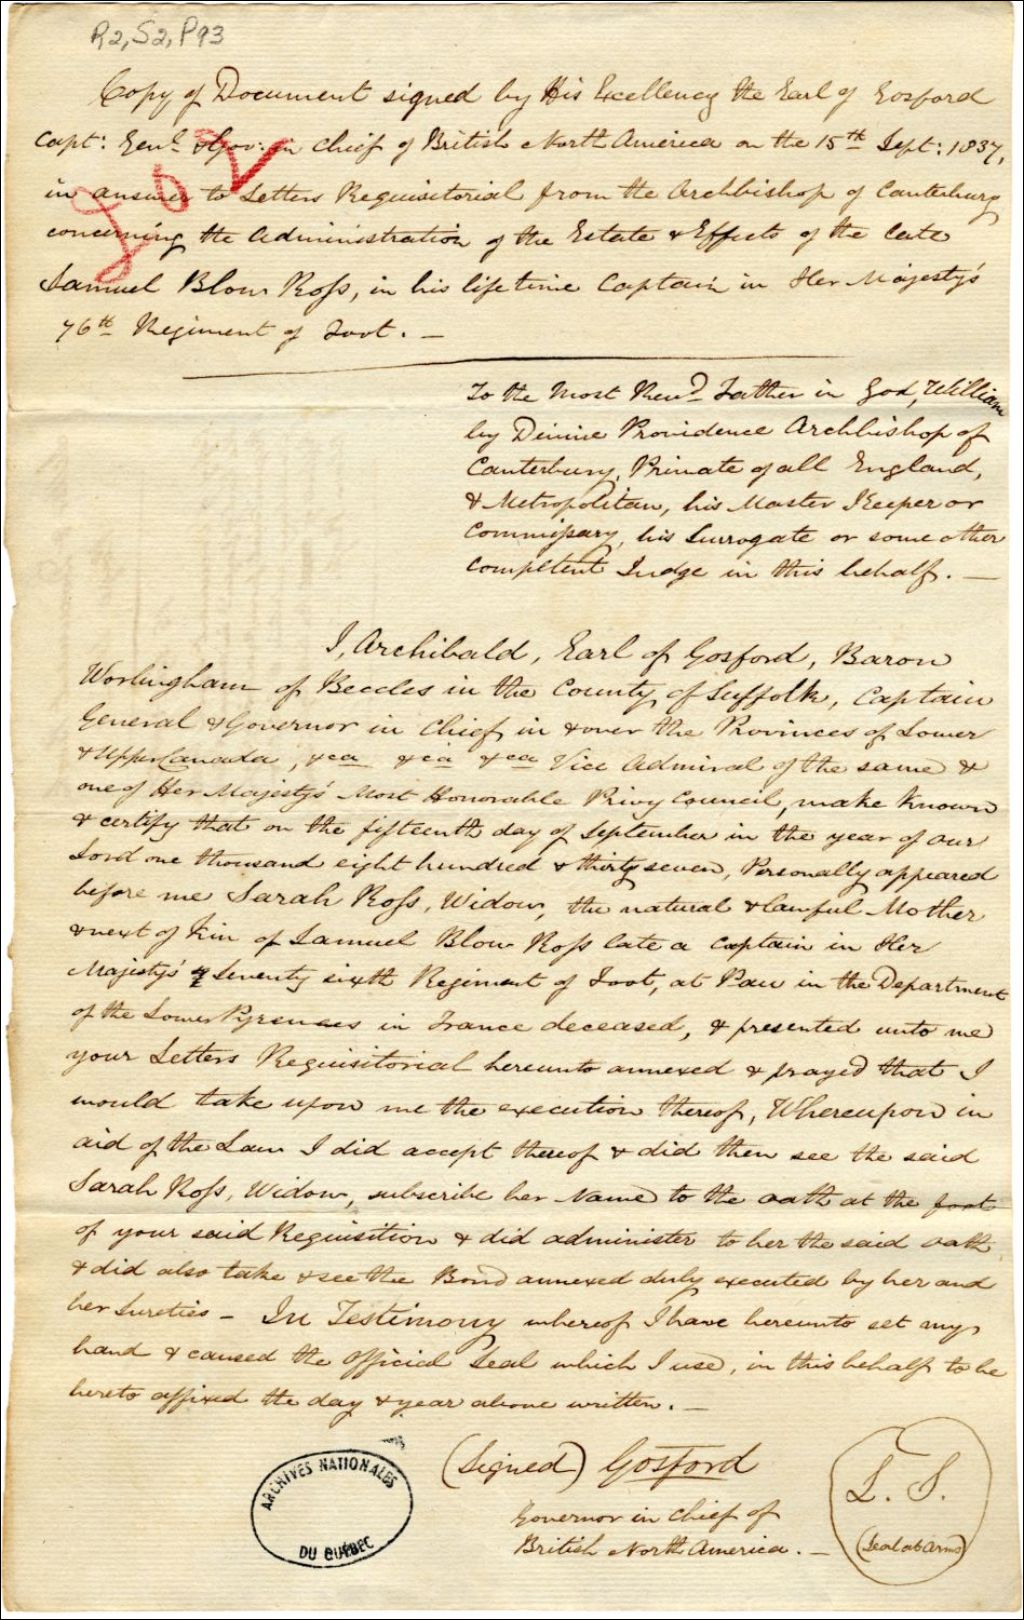 R2, S2, P93
Copy of Document signed by His Excellency the Earl of Gosford
Capt: Genl. & Gov: in Chief of British North America on the 15th Sept: 1837,
in answer to Letters Requisitorial from the Archbishop of Canterbury
concerning the Administration of the Estate & Effects of the late
Samuel Blow Ross, in his life time Captain in Her Majesty's
76th Regiment of Foot. —
To the Most Revd. Father in God, William
by Divine Providence Archbishop of
Canterbury, Primate of all England,
& Metropolitan, his Master Keeper or
Commissary, his Surrogate or some other
competent Judge in this behalf. —
I, Archibald, Earl of Gosford, Baron
Worlingham of Beccles in the County of Suffolk, Captain
General & Governor in Chief in & over the Provinces of Lower
& Upper Canada, &ca &ca &ca Vice Admiral of the same &
one of Her Majesty's Most Honorable Privy Council, make known
& certify that on the fifteenth day of September in the year of our
Lord one thousand eight hundred & thirty seven, Personally appeared
before me Sarah Ross, Widow, the natural & lawful Mother
& next of Kin of Samuel Blow Ross late a Captain in Her
Majesty's Seventy sixth Regiment of Foot, at Pau in the Department
of the Lower Pyrenees in France deceased, & presented unto me
your Letters Requisitorial hereunto annexed & prayed that I
would take upon me the execution thereof, Whereupon in
aid of the Law I did accept thereof & did then see the said
Sarah Ross, Widow, subscribe her Name to the oath at the foot
of your said Requisition & did administer to her the said oath
& did also take & see the Bond annexed duly executed by her and
her Sureties – In Testimony whereof I have hereunto set my
hand & caused the Official Seal which I use, in this behalf to be
hereto affixed the day & year above written. —
(Signed) Gosford
Governor in Chief of
British North America. —
L. S.
(Seal at Arms)
ARCHIVES NATIONALES
DU QUÉBEC